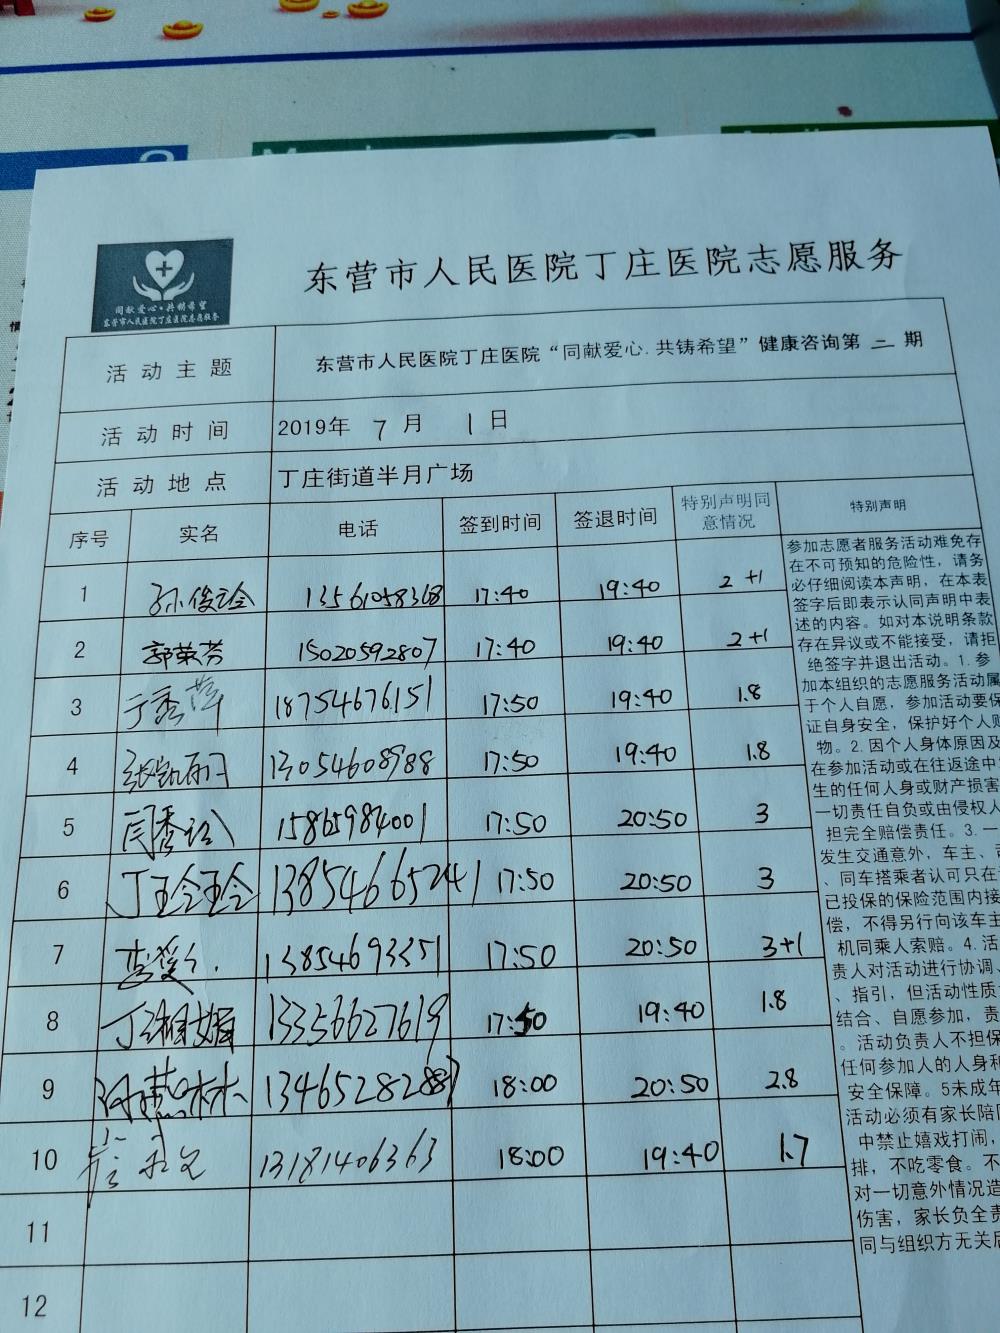 同献爱心·共铸希望
东营市人民医院丁庄医院志愿服务
东营市人民医院丁庄医院志愿服务
活动主题 东营市人民医院丁庄医院“同献爱心.共铸希望”健康咨询第二期
活动时间 2019年 7 月 1 日
活动地点 丁庄街道半月广场
序号 实名 电话 签到时间 签退时间 特别声明同意情况 特别声明
1 13561058368 17:40 19:40 2+1
2 郭荣芳 15020592807 17:40 19:40 2+1
3 于秀萍 18754676151 17:50 19:40 1.8
4 张凯丽 13054608988 17:50 19:40 1.8
5 闫秀 15865984001 17:50 20:50 3
6 丁玲玲 13854665241 17:50 20:50 3
7 13854693351 17:50 20:50 3+1
8 丁 13356627619 17:50 19:40 1.8
9 18:00 20:50 2.8
10 13181406363 18:00 19:40 1.7
11
12
参加志愿者服务活动难免存
在不可预知的危险性，请务
必仔细阅读本声明，在本表
签字后即表示认同声明中表
述的内容。如对本说明条款
存在异议或不能接受，请拒
绝签字并退出活动。1.参
加本组织的志愿服务活动属
于个人自愿，参加活动要保
证自身安全，保护好个人财
物。2.因个人身体原因及
在参加活动或在往返途中
生的任何人身或财产损害
一切责任自负或由侵权人
担完全赔偿责任。3.一
发生交通意外，车主、司
、同车搭乘者认可只在
已投保的保险范围内接
偿，不得另行向该车主
机同乘人索赔。4.活
责人对活动进行协调、
、指引，但活动性质
结合、自愿参加，责
。活动负责人不担保
任何参加人的人身和
安全保障。5未成年
活动必须有家长陪
中禁止嬉戏打闹，
排，不吃零食。不
对一切意外情况造
伤害，家长负全责
同与组织方无关